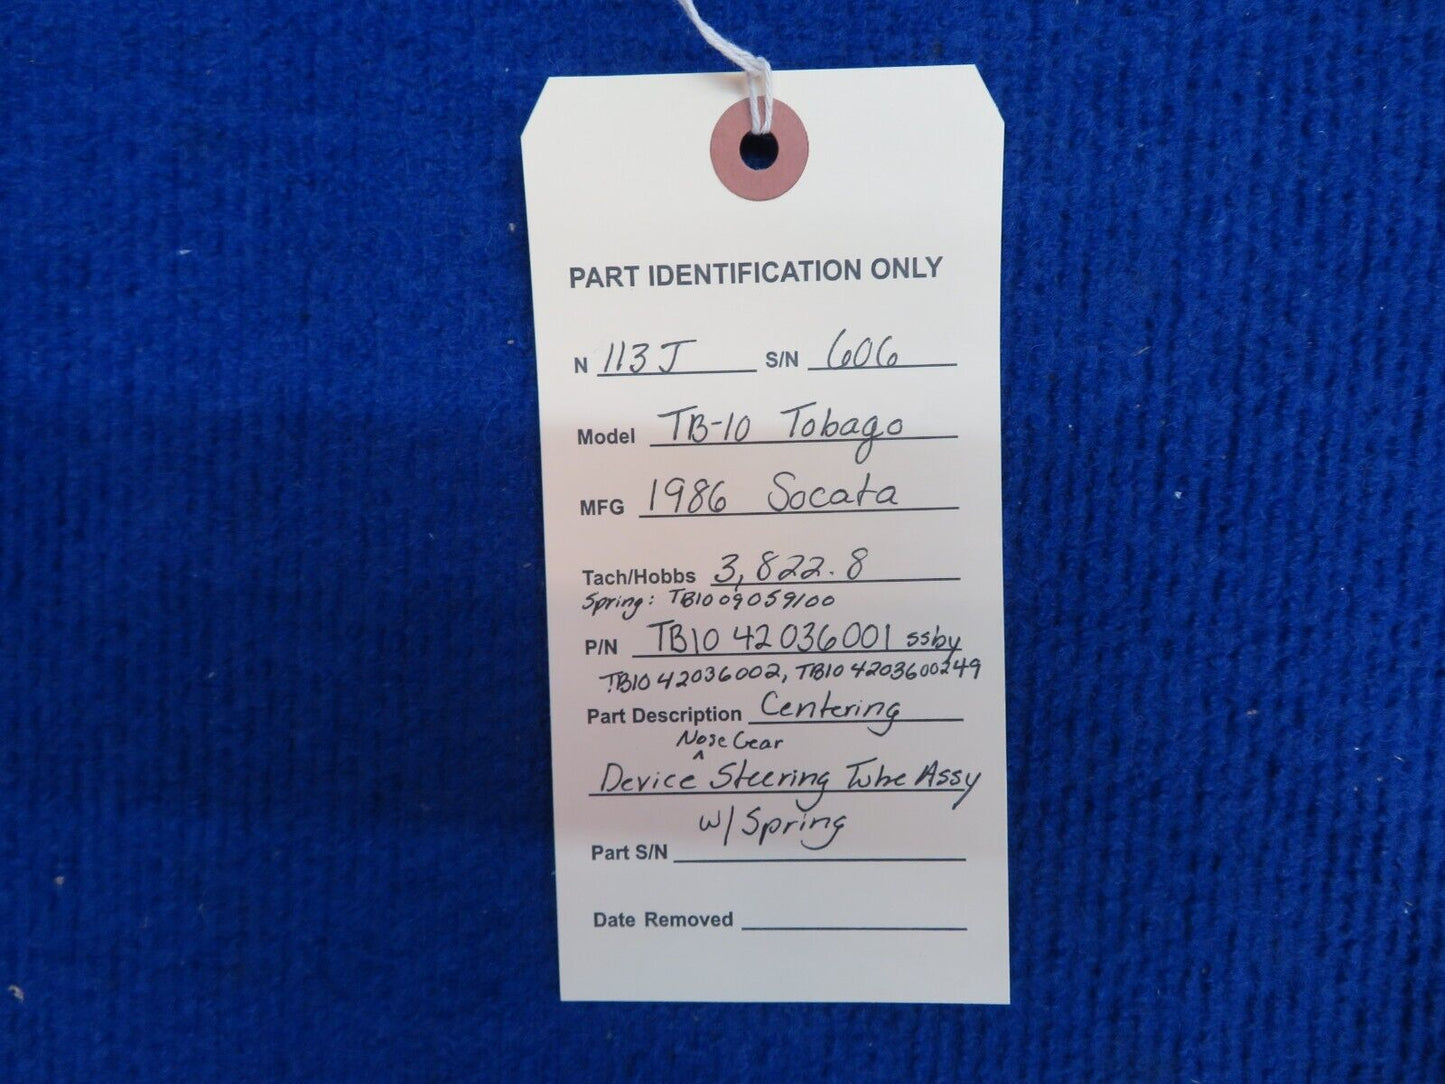 PART IDENTIFICATION ONLY
N 113J S/N 606
Model TB-10 Tobago
MFG 1986 Socata
Tach/Hobbs 3,822.8
Spring: TB10 09059100
P/N TB10 42036001 ssby
TB10 42036002, TB10 4203600249
Part Description Centering
Nose Gear
^
Device Steering Tube Assy
w/ Spring
Part S/N
Date Removed